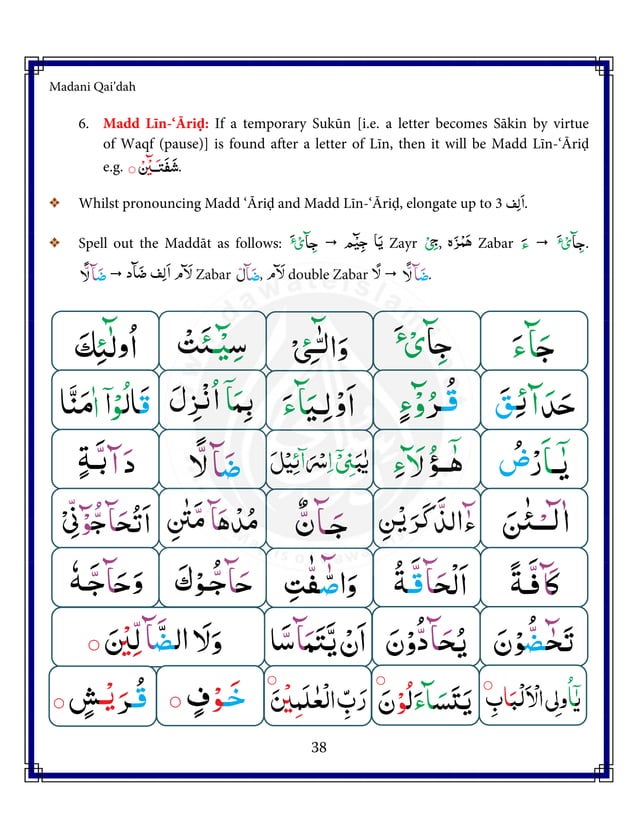 Madani Qai'dah
6. Madd Līn-‘Āriḍ: If a temporary Sukūn [i.e. a letter becomes Sākin by virtue
of Waqf (pause)] is found after a letter of Līn, then it will be Madd Līn-‘Āriḍ
e.g. شَفَتَــيْنِ ○.
❖ Whilst pronouncing Madd ‘Āriḍ and Madd Līn-‘Āriḍ, elongate up to 3 اَلِف.
❖ Spell out the Maddāt as follows: جِآیْٓءَ → جِیْمْ یَآ Zayr جِیْٓ, هَمْزَہْ Zabar ءَ → جِآیْٓءَ.
ضَآلًّا → ضَآدْ اَلِف لَآمْ Zabar ضَآلّ, لَآمْ double Zabar لًا → ضَآلًّا.
جَآءَ جِآیْٓءَ وَالّٰٓـِٔیْ سِیْٓـَٔتْ اُولٰٓئِكَ
حَدَآئِقَ قُرُوْٓءٍ اَوْلِیَآءَ بِمَآ اُنْزِلَ قَالُوْٓا اٰمَنَّا
یٰٓاَرْضُ هٰٓؤُلَآءِ یٰبَنِیْٓ اِسْرَآءِیْلَ ضَآلًّا دَآبَّةٍ
آٰلْـٰٔنَ ءٰٓالذَّكَرَیْنِ جَآنٌّ مُدْهَآمَّتٰنِ اَتُحَآجُّوْٓنِّیْ
كَآفَّةً اَلْحَآقَّةُ وَالصّٰٓفّٰتِ حَآجُّوْكَ وَحَآجَّهٗ
تَحٰٓضُّوْنَ یُحَآدُّوْنَ اَنْ یَّتَمَآسَّا وَلَا الضَّآلِّیْنَ ○
یٰٓاُولِی الْاَلْبَابِ ○ یَتَسَآءَلُوْنَ ○ رَبِّ الْعٰلَمِیْنَ ○ خَوْفٍ ○ قُرَیْشٍ ○
38